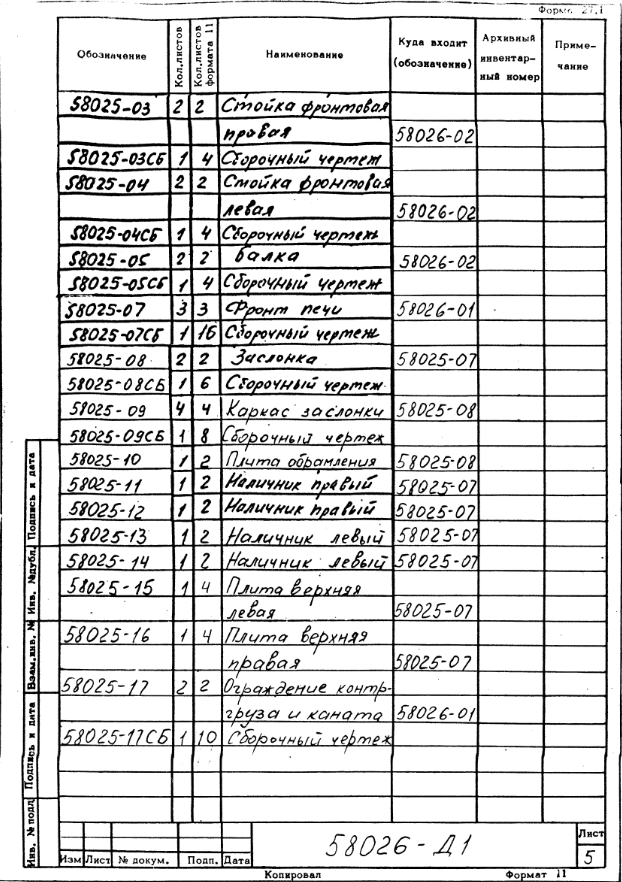 Форма 27.1
Обозначение Кол.листов Кол.листов формата 11 Наименование Куда входит (обозначение) Архивный инвентар-ный номер Приме-чание
58025-03 2 2 Стойка фронтовая
правая 58026-02
58025-03СБ 1 4 Сборочный чертеж
58025-04 2 2 Стойка фронтовая
левая 58026-02
58025-04СБ 1 4 Сборочный чертеж
58025-05 2 2 Балка 58026-02
58025-05СБ 1 4 Сборочный чертеж
58025-07 3 3 Фронт печи 58026-01
58025-07СБ 1 16 Сборочный чертеж
58025-08 2 2 Заслонка 58025-07
58025-08СБ 1 6 Сборочный чертеж
58025-09 4 4 Каркас заслонки 58025-08
58025-09СБ 1 8 Сборочный чертеж
58025-10 1 2 Плита обрамления 58025-08
58025-11 1 2 Наличник правый 58025-07
58025-12 1 2 Наличник правый 58025-07
58025-13 1 2 Наличник левый 58025-07
58025-14 1 2 Наличник левый 58025-07
58025-15 1 4 Плита верхняя
левая 58025-07
58025-16 1 4 Плита верхняя
правая 58025-07
58025-17 2 2 Ограждение контр-
груза и каната 58026-01
58025-17СБ 1 10 Сборочный чертеж
Инв. № подл Подпись и дата Взам.инв. № Инв. №дубл. Подпись и дата
58026-Д1
Лист
5
Изм Лист № докум. Подп. Дата
Копировал Формат 11